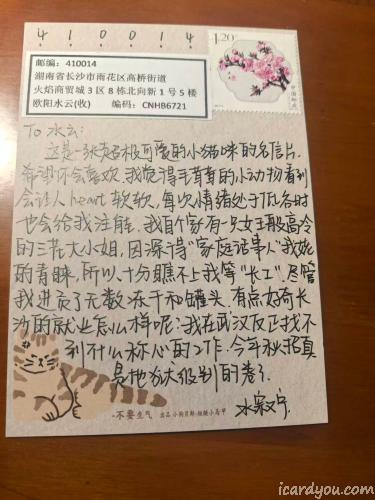 410014
1.20
中国邮政
邮编：410014
湖南省长沙市雨花区高桥街道
火焰商贸城3区8栋北向新1号5楼
欧阳水云(收) 编码：CNHB6721
To 水云：
这是一张超级可爱的小猫咪的名信片
希望你会喜欢. 我觉得毛茸茸的小动物看到
会让人heart 软软，每次情绪处于低谷时
也会给我注能。我自个家有一只女王般高冷
的三花大小姐，因深得“家庭话事人”我妈
的青睐，所以，十分瞧不上我等“长工”尽管
我进贡了无数冻干和罐头. 有点好奇长
沙的就业怎么样呢？我在武汉反正找不
到什么称心的工作. 今年秋招真
是地狱级别的卷了
-不要生气
水
icardyou.com